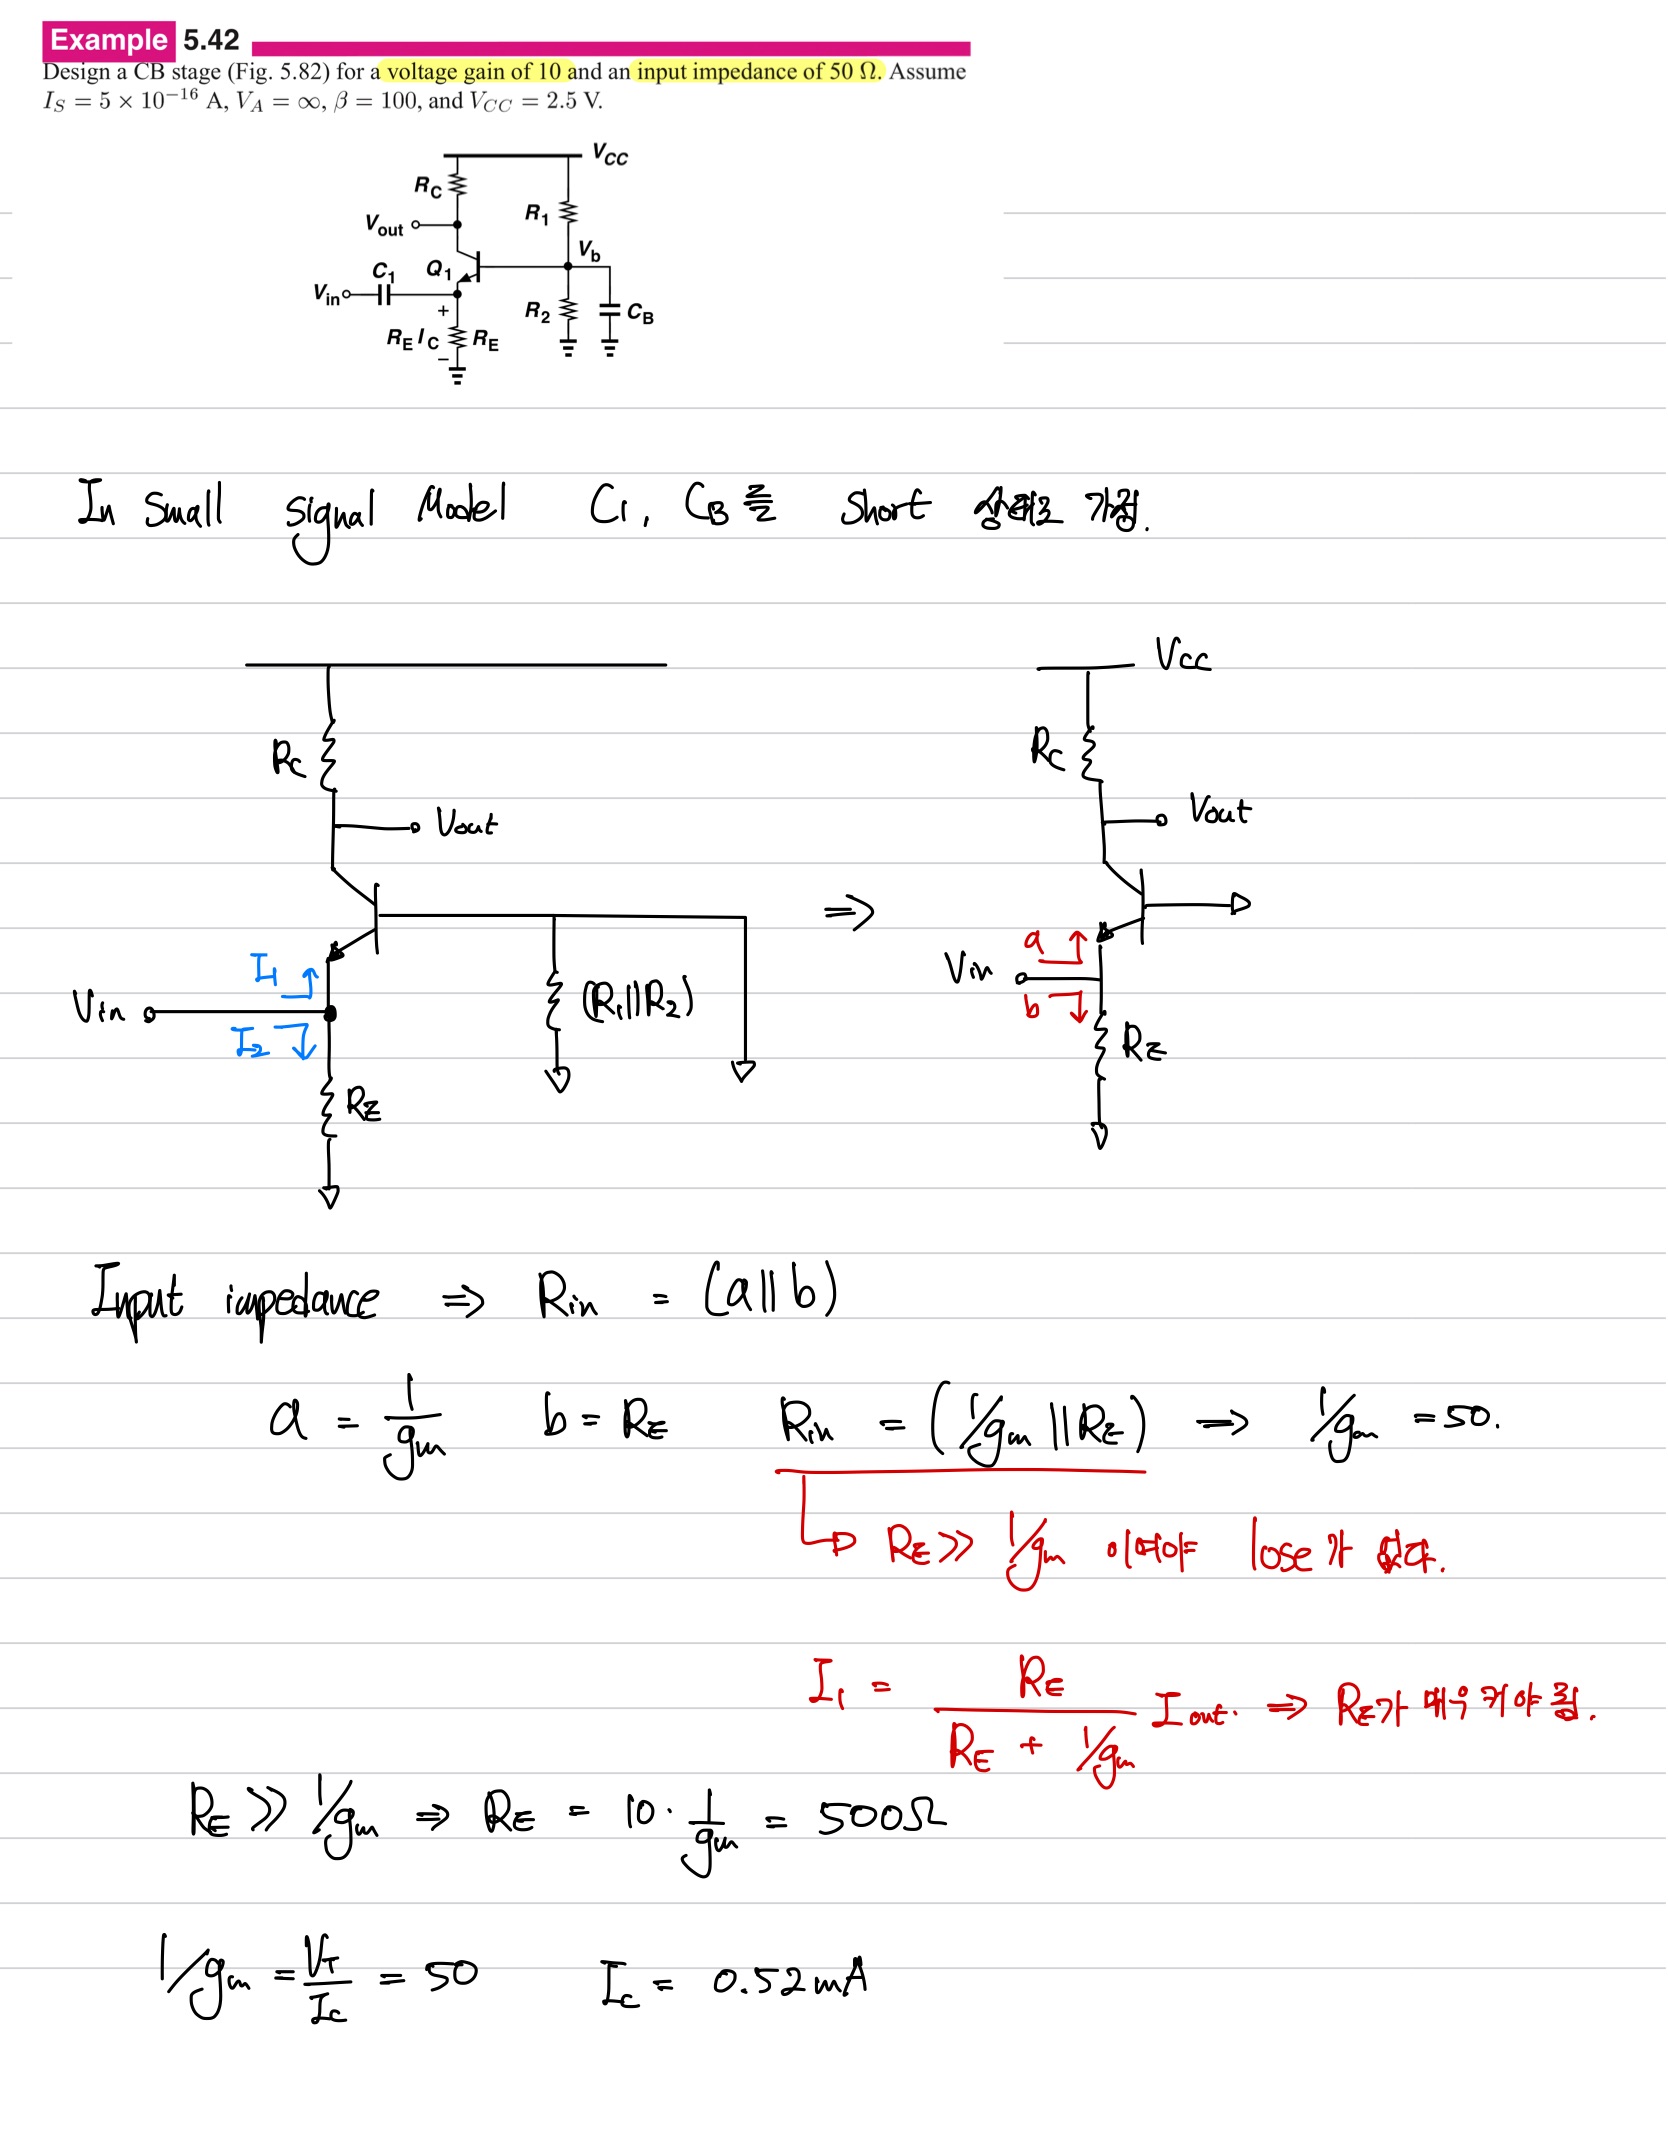 Example 5.42
Design a CB stage (Fig. 5.82) for a voltage gain of 10 and an input impedance of 50 Ω. Assume
I_S = 5 × 10^−16 A, V_A = ∞, β = 100, and V_CC = 2.5 V.
VCC
RC
R1
Vout
Vb
C1
Q1
Vin
+
R2
CB
RE IC
RE
−
In Small Signal Model C1, CB를 Short 상태로 가정.
Vcc
Rc
Rc
Vout
Vout
I1
a
Vin
(R1||R2)
Vin
b
I2
RE
RE
⇒
Input impedance ⇒ Rin = (a||b)
a = 1/gm b = RE Rin = (1/gm || RE) ⇒ 1/gm = 50.
RE ≫ 1/gm 이어야 lose가 없다.
I1 = RE / (RE + 1/gm) Iout. ⇒ RE가 매우 커야 함.
RE ≫ 1/gm ⇒ RE = 10 · 1/gm = 500Ω
1/gm = VT/Ic = 50 Ic = 0.52mA